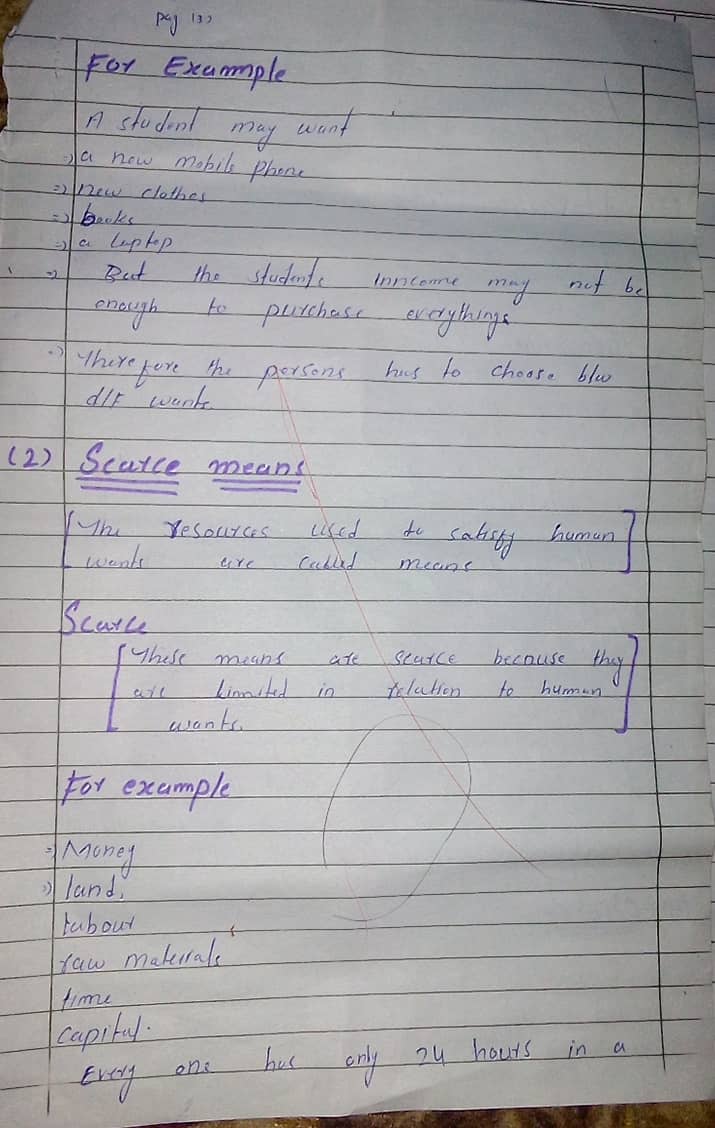 pag 133
For Exammple
A student may want
=> a new mobile phone
=> new clothes
=> books
=> a laptop
=> But the students inncome may not be
enough to purchase everythings
=> Therefore the persons has to choose b/w
d/f wants.
(2) Scarce means
[The resources used to satisfy human
wants are called means]
Scarce
[These means are scarce because they
are limited in relation to human
wants.]
For example
=> Money
=> land,
labour
raw materials
time
capital.
Every one has only 24 hours in a